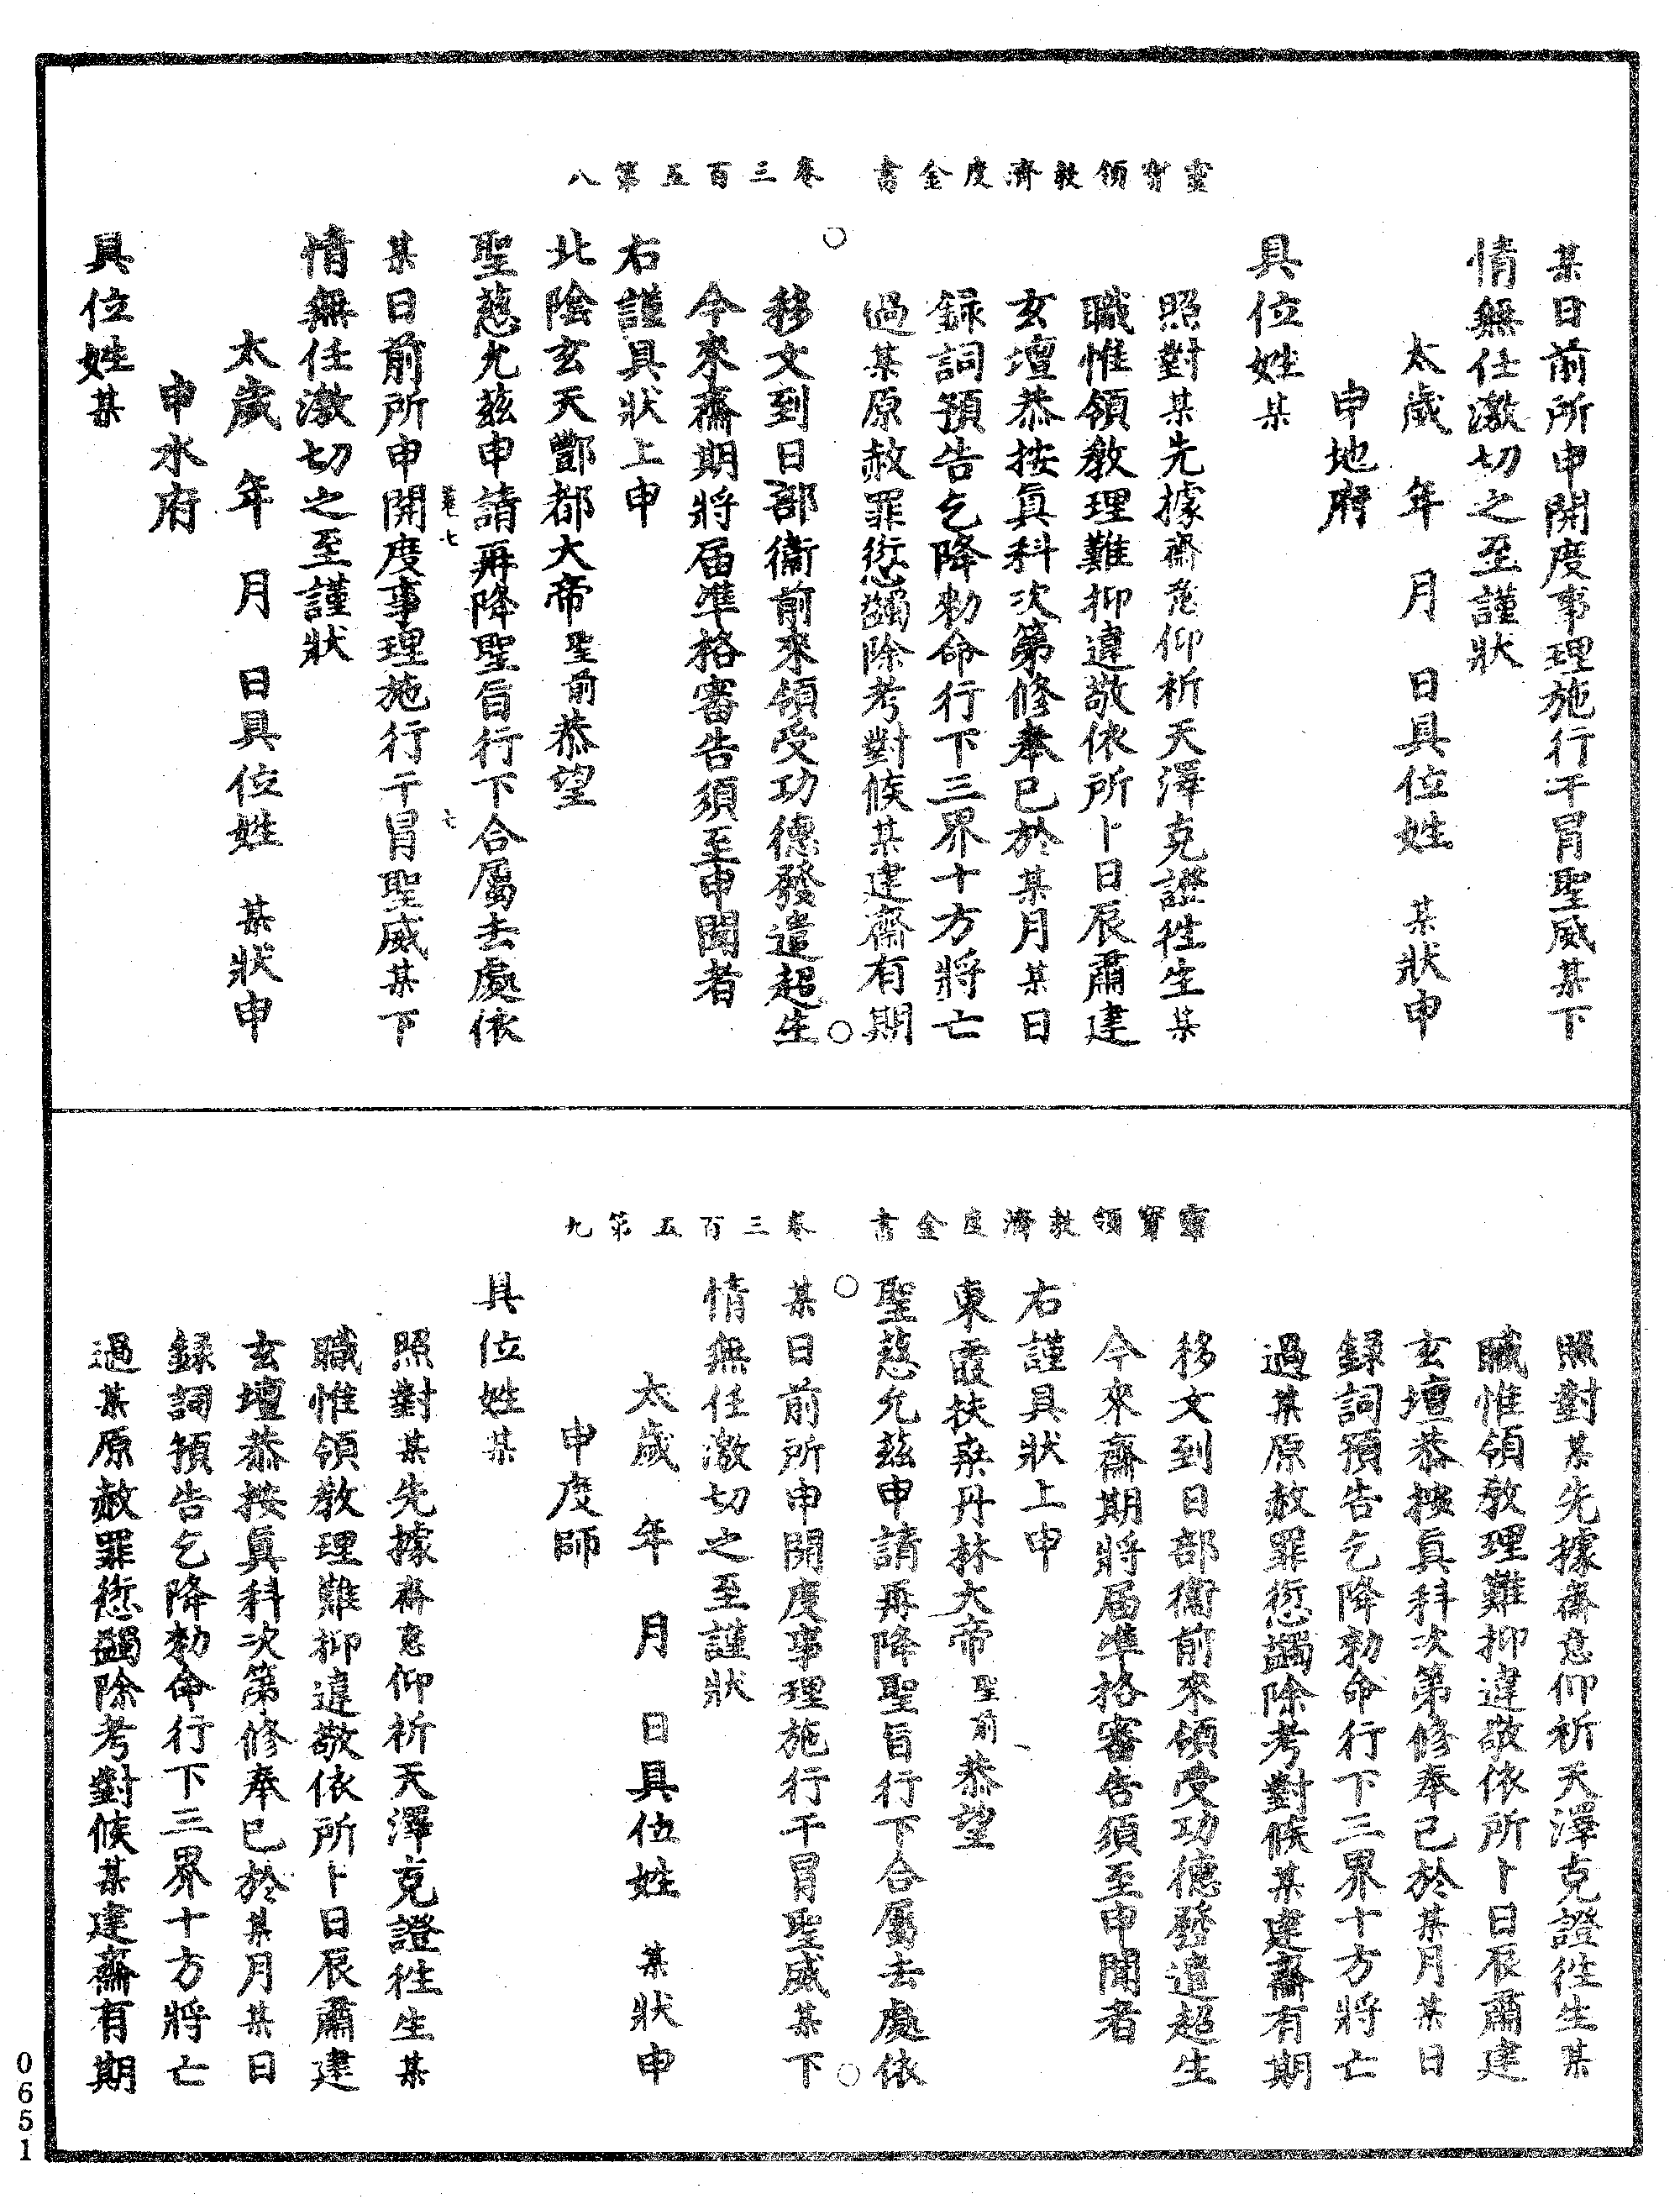 靈寶領教濟度金書 卷三百五第八
某日前所申開度事理施行干冒聖威某下
情無任激切之至謹狀
太歲 年 月 日具位姓 某狀申
申地府
具位姓某
照對某先據齋意仰祈天澤克證徃生某
職惟領教理難抑違敬依所卜日辰肅建
玄壇恭按真科次第修奉已於某月某日
録詞預告乞降勑命行下三界十方將亡
過某原赦罪愆蠲除考對候某建齋有期
移文到日部衞前來領受功德發遣超生
今來齋期將届準格審告須至申聞者
右謹具狀上申
北陰玄天酆都大帝聖前恭望
聖慈允兹申請再降聖旨行下合屬去處依
某日前所申開度事理施行干冒聖威某下
情無任激切之至謹狀
太歲 年 月 日具位姓 某狀申
申水府
具位姓某
靈寶領教濟度金書 卷三百五第九
照對某先據齋意仰祈天澤克證徃生某
職惟領教理難抑違敬依所卜日辰肅建
玄壇恭按真科次第修奉已於某月某日
録詞預告乞降勑命行下三界十方將亡
過某原赦罪愆蠲除考對候某建齋有期
移文到日部衞前來領受功德發遣超生
今來齋期將届準格審告須至申聞者
右謹具狀上申
東霞扶桒丹林大帝聖前恭望
聖慈允兹申請再降聖旨行下合屬去處依
某日前所申開度事理施行干冒聖威某下
情無任激切之至謹狀
太歲 年 月 日具位姓 某狀申
申度師
具位姓某
照對某先據齋意仰祈天澤克證徃生某
職惟領教理難抑違敬依所卜日辰肅建
玄壇恭按真科次第修奉已於某月某日
録詞預告乞降勑命行下三界十方將亡
過某原赦罪愆蠲除考對候某建齋有期
0651